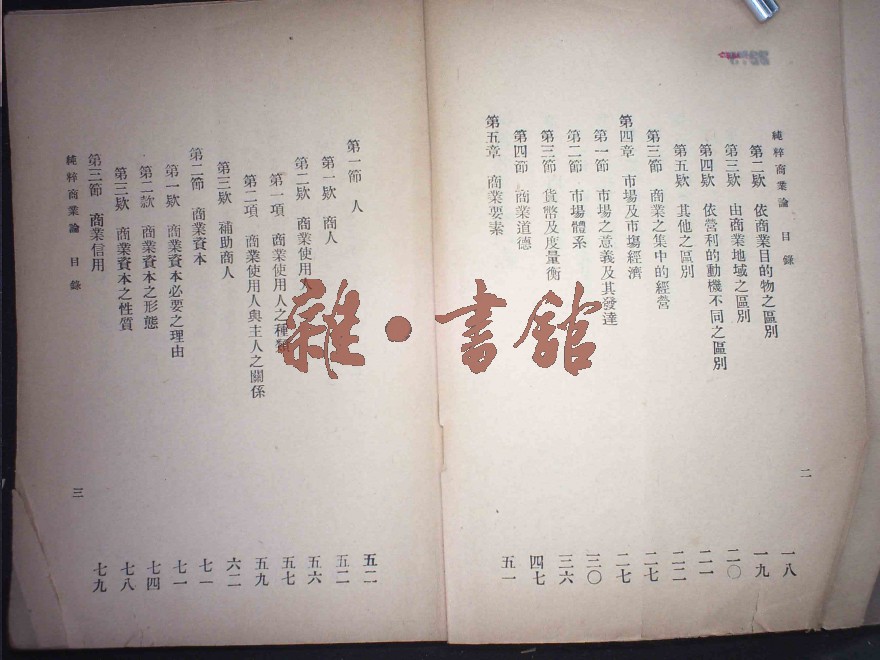 純粹商業論 目錄 二
第二欵 依商業目的物之區別 一八
第三欵 由商業地域之區別 一九
第四欵 依營利的動機不同之區別 二〇
第五欵 其他之區別 二一
第三節 商業之集中的經營 二二
第四章 市場及市塲經濟 二七
第一節 市場之意義及其發達 二七
第二節 市場體系 三〇
第三節 貨幣及度量衡 三六
第四節 商業道德 四七
第五章 商業要素 五一
第一節 人 五二
第一欵 商人 五二
第二欵 商業使用人 五六
第一項 商業使用人之種類 五七
第二項 商業使用人與主人之關係 五九
第三欵 補助商人 六二
第二節 商業資本 七一
第一欵 商業資本必要之理由 七一
第二款 商業資本之形態 七四
第三欵 商業資本之性質 七八
第三節 商業信用 七九
純粹商業論 目錄 三
雜·書舘